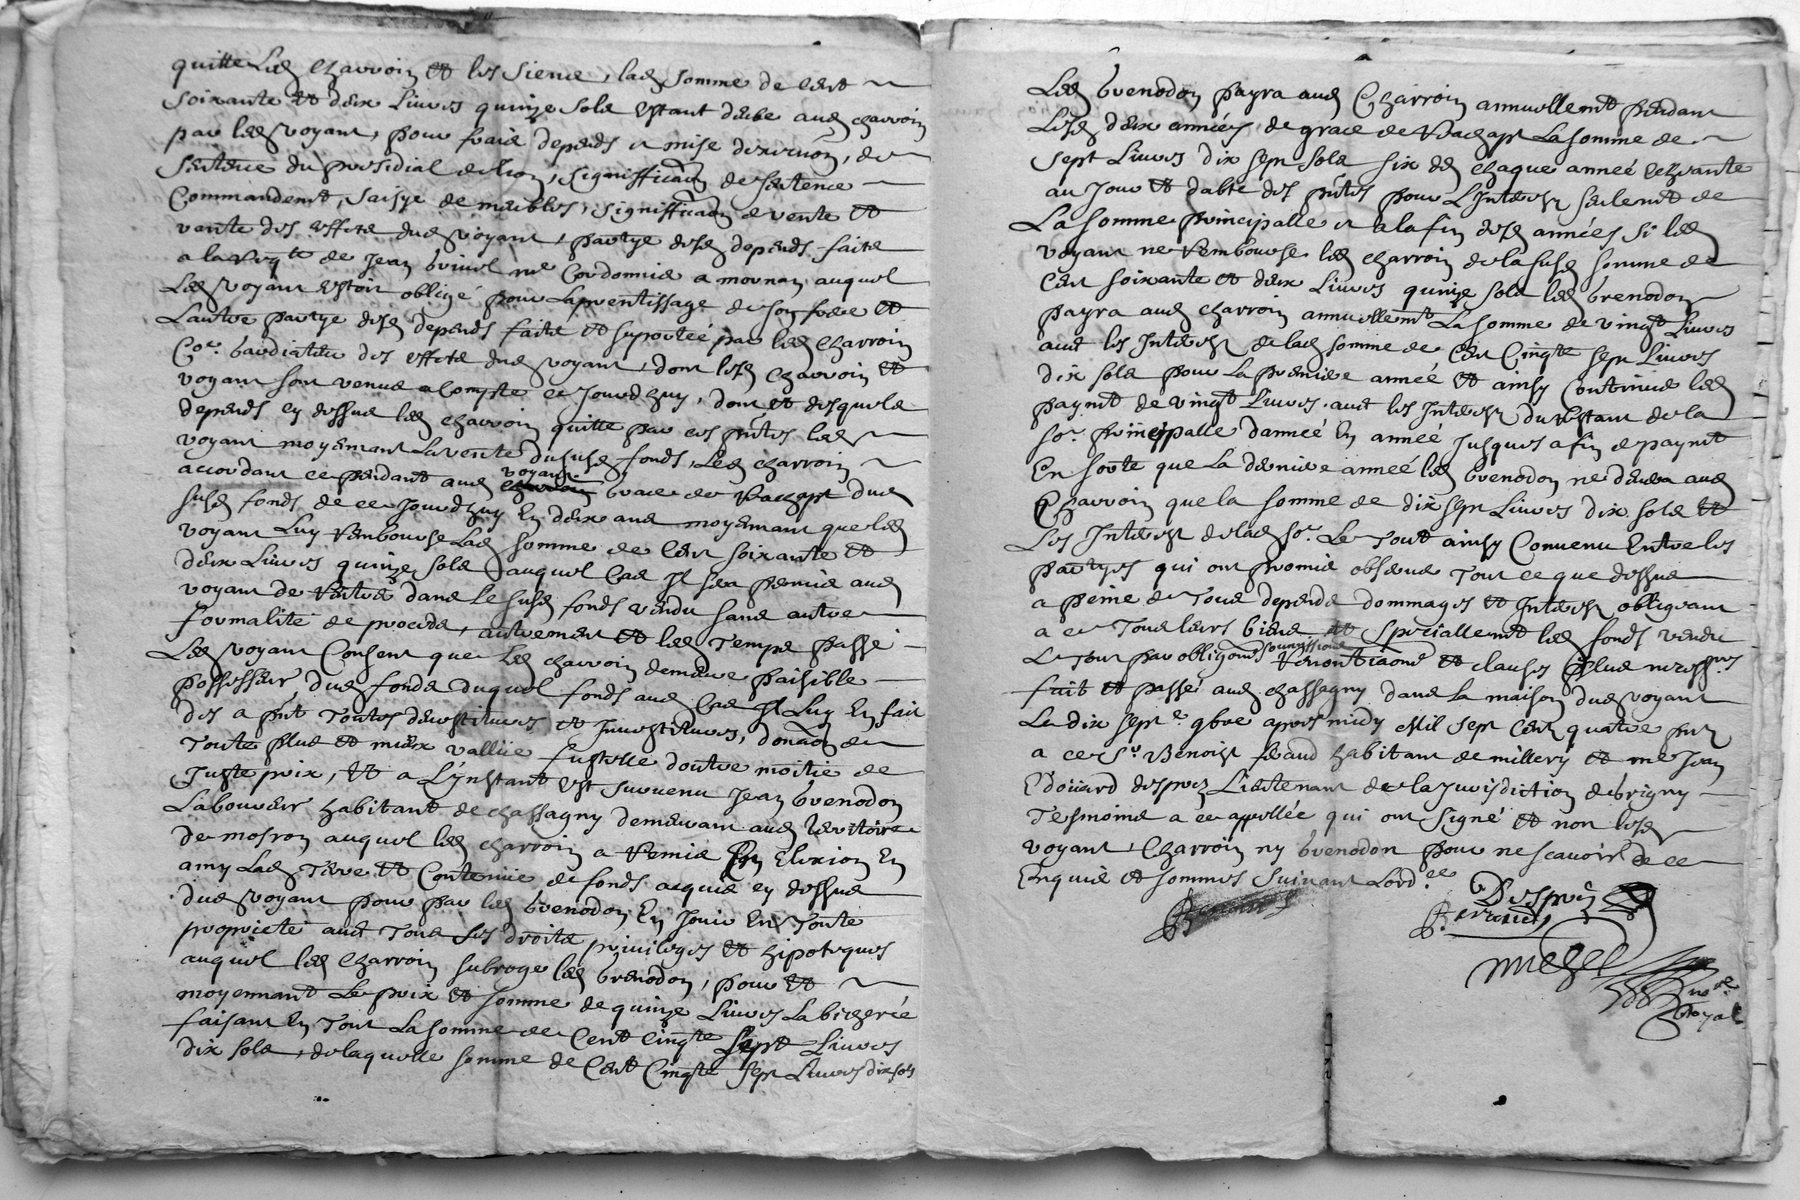 quitte Led Charroin et les siens, lad somme de cent
soixante et deux Livres quinze sols estant deube aud charroin
par led voyant, pour frais depends et mise dexecuõn, de
sentence du presidial de lion, signifficaõn de sentence
Commandemt, saisye de meubles, signifficaõn de vente et
vente des effets dud voyant, partye desd depends faits
a la reqte de Jean brunel me Cordonnie a mornan auquel
Led voyant estoit obligé pour Laprentissage de son frere et
Lautre partye desd depends faits et suportée par led Charroin
Coe. gardiateur des effets dud voyant, dont lesd charroin et
voyant sont venus a Compte ce Jourdhuy, dont et desquels
depends cy dessus led charroin quitte par ces pntes led
voyant moyennant la vente dusud fonds, Led charroin
accordant cependant aud voyant grace de Rachapt dud
susd fonds de ce Jourdhuy En deux ans moyennant que led
voyant Luy rembourse Lad somme de Cent soixante et
deux Livres quinze sols auquel Cas Il sera permis aud
voyant de rentrer dans Le susd fonds vendu sans autre
formalité de procede, autrement et led Temps passé
Led voyant Consent que Led charroin demeure paisible
possesseur dud fonds duquel fonds aud Cas Il Luy En fait
des a pnt Toutes devestitures et Investitures, donaõn de
Toute plus et mieux vallüe fustelle doutre moitie de
Juste prix, et a L'ynstant est survenu Jean brenodon
Laboureur habitant de chassagny demeurant aud territoire
de mosron auquel led charroin a remis En Elexion En
amy Lad Terre et Contenue de fonds acquis cy dessus
dud voyant pour par led brenodon En Jouir En Toute
proprieté avec Tous ses droits privileges et hipoteques
auquel led Charroin subroge led brenodon, pour et
moyennant Le prix et somme de quinze Livres La bicherée
faisant En Tout La somme de Cent Cinqte sept Livres
dix sols, de laquelle somme de Cent Cinqte sept Livres dix sols
Led brenodon payra aud Charroin annuellemt pendant
Lesd deux années de grace de Rachapt La somme de
sept Livres dix sept sols six ds chaque année Escheante
au Jour et datte des pntes pour L'Interest seulemt de
La somme principalle et a la fin desd années si led
voyant ne rembourse led charroin de la susd somme de
Cent soixante et deux Livres quinze sols led brenodon
payra aud charroin annuellemt La somme de vingt Livres
avec les Interest de lad somme de Cent Cinqte sept Livres
dix sols pour La premiere année et ainsy Continuer led
paymt de vingt Livres avec les Interest du restant de la
soe. principalle d'année En année Jusques a fin de paymt
En sorte que La derniere année led brenodon ne devra aud
Charroin que la somme de dix sept Livres dix sols et
Les Interest de lad soe. Le Tout ainsy Convenu Entre les
partyes qui ont promis observer Tout ce que dessus
a peine de Tous depends dommages et Interest obligeant
a ce Tous leurs biens et Speciallemt led fonds vendu
Le Tout par obligons soumissions Renontiaons et clauses plus necessres
fait et passé aud chassagny dans la maison dud voyant
Le dix sept e 9bre apres midy Mil sept Cent quatre pnt
a ce sr Benoist feaud habitant de millery et me Jean
Edoüard despres Lieutenant de la Jurisdiction de brigny
Tesmoins a ce appellée qui ont signé et non lesd
voyant, Charroin ny brenodon pour ne scavoir de ce
Enquis et sommes suivant Lord.ce
Despres
michel
nore
Royal